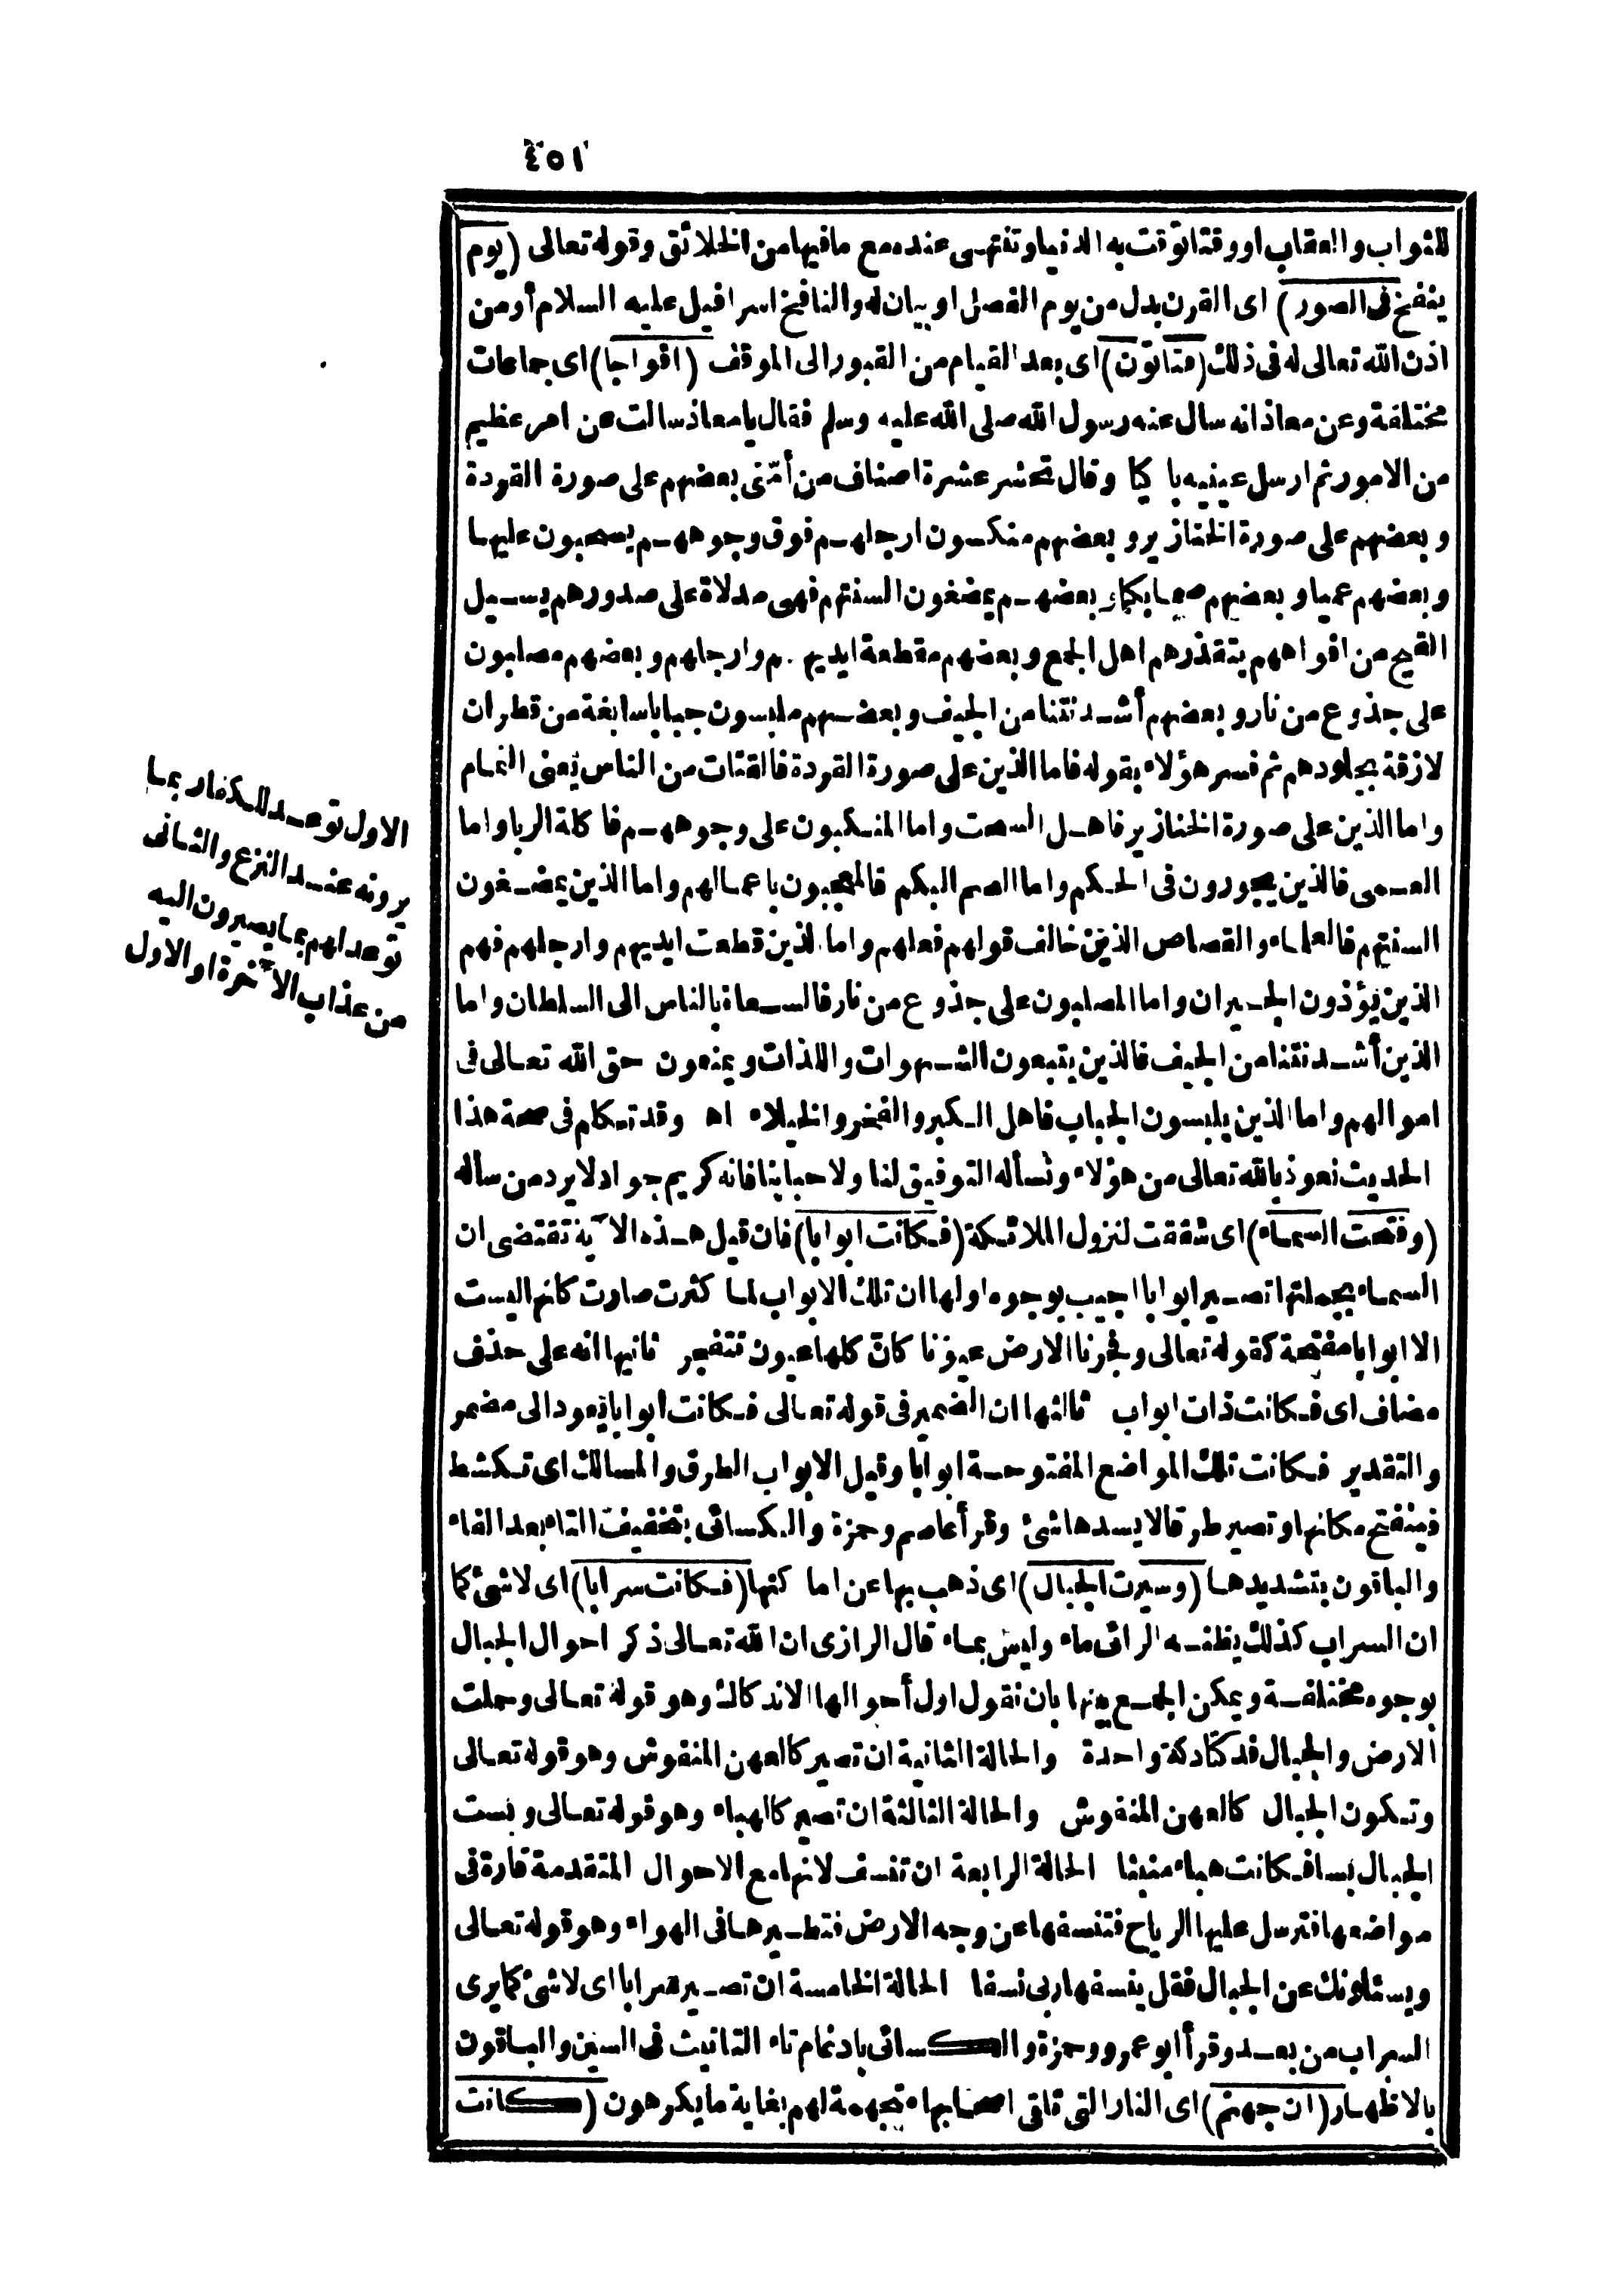 ٤٥١
للثواب والعقاب او وقتا توقت به الدنيا وتنتهى عنده مع مافيها من الخلائق وقوله تعالى (يوم
ينفخ فى الصور) اى القرن بدل من يوم الفصل او بيان له والنافخ اسرافيل عليه السلام أو من
اذن الله تعالى له فى ذلك (فتاتون) اى بعد القيام من القبور الى الموقف (افواجا) اى جماعات
مختلفة وعن معاذ انه سال عنه رسول الله صلى الله عليه وسلم فقال يا معاذ سالت عن امر عظيم
من الامور ثم ارسل عينيه باكيا وقال تحشر عشرة اصناف من أمتى بعضهم على صورة القردة
وبعضهم على صورة الخنازير وبعضهم منكسون ارجلهم فوق وجوههم يسحبون عليها
وبعضهم عميا وبعضهم صما بكما وبعضهم يمضغون السنتهم فهى مدلاة على صدورهم يسيل
القيح من افواههم يتقذرهم اهل الجمع وبعضهم مقطعة ايديهم وارجلهم وبعضهم مصلبون
على جذوع من نار وبعضهم أشد نتنا من الجيف وبعضهم ملبسون جبابا سابغة من قطران
لازقة بجلودهم ثم فسر هؤلاء بقوله فاما الذين على صورة القردة فالقتات من الناس يعنى النمام
واما الذين على صورة الخنازير فاهل السحت واما المنكبون على وجوههم فاكلة الربا واما
العمى فالذين يجورون فى الحكم واما الصم البكم فالمعجبون باعمالهم واما الذين يمضغون
السنتهم فالعلماء والقصاص الذين خالف قولهم فعلهم واما الذين قطعت ايديهم وارجلهم فهم
الذين يؤذون الجيران واما المصلبون على جذوع من نار فالسعاة بالناس الى السلطان واما
الذين أشد نتنا من الجيف فالذين يتبعون الشهوات واللذات ويمنعون حق الله تعالى فى
اموالهم واما الذين يلبسون الجباب فاهل الكبر والفخر والخيلاء اه وقد تكلم فى صحة هذا
الحديث نعوذ بالله تعالى من هؤلاء ونسأله التوفيق لنا ولاحبابنا فانه كريم جواد لا يرد من سأله
(وفتحت السماء) اى شققت لنزول الملائكة (فكانت ابوابا) فان قيل هذه الآية تقتضى ان
السماء بجملتها تصير ابوابا اجيب بوجوه اولها ان تلك الابواب لما كثرت صارت كانها ليست
الا ابوابا مفتحة كقوله تعالى وفجرنا الارض عيونا كان كلها عيون تتفجر ثانيها انه على حذف
مضاف اى فكانت ذات ابواب ثالثها ان الضمير فى قوله تعالى فكانت أبوابا يعود الى مضمر
والتقدير فكانت تلك المواضع المفتوحة ابوابا وقيل الابواب الطرق والمسالك اى تكشط
فينفتح مكانها وتصير طرقا لا يسدها شئ وقرأ عاصم وحمزة والكسائى بتخفيف التاء بعد الفاء
والباقون بتشديدها (وسيرت الجبال) اى ذهب بها عن اماكنها (فكانت سرابا) اى لا شئ كما
ان السراب كذلك يظنه الرائى ماء وليس بماء قال الرازى ان الله تعالى ذكر احوال الجبال
بوجوه مختلفة ويمكن الجمع بينها بان نقول اول أحوالها الاندكاك وهو قوله تعالى وحملت
الارض والجبال فدكتا دكة واحدة والحالة الثانية ان تصير كالعهن المنفوش وهو قوله تعالى
وتكون الجبال كالعهن المنفوش والحالة الثالثة ان تصير كالهباء وهو قوله تعالى وبست
الجبال بسا فكانت هباء منبثا الحالة الرابعة ان تنسف لانها مع الاحوال المتقدمة قارة فى
مواضعها فترسل عليها الرياح فتنسفها عن وجه الارض فتطيرها فى الهواء وهو قوله تعالى
ويسئلونك عن الجبال فقل ينسفها ربى نسفا الحالة الخامسة ان تصير سرابا اى لا شئ كما يرى
السراب من بعد وقرأ أبو عمرو وحمزة والكسائى بادغام تاء التانيث فى السين والباقون
بالاظهار (ان جهنم) اى النار التى تلقى اصحابها متجهمة لهم بغاية ما يكرهون (كانت
الاول توعد للكفار بما
يرونه عند النزع والثانى
توعد لهم بما يصيرون اليه
من عذاب الآخرة او الاول